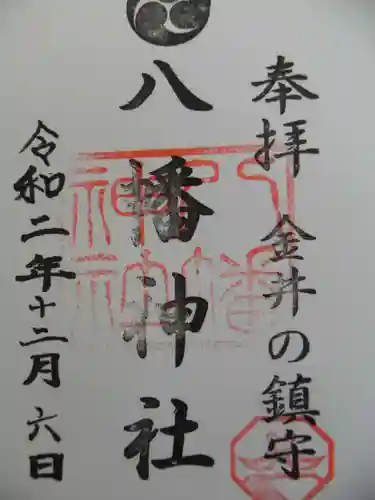 奉拝 金井の鎮守
八幡神社
令和二年十二月六日
八幡神社